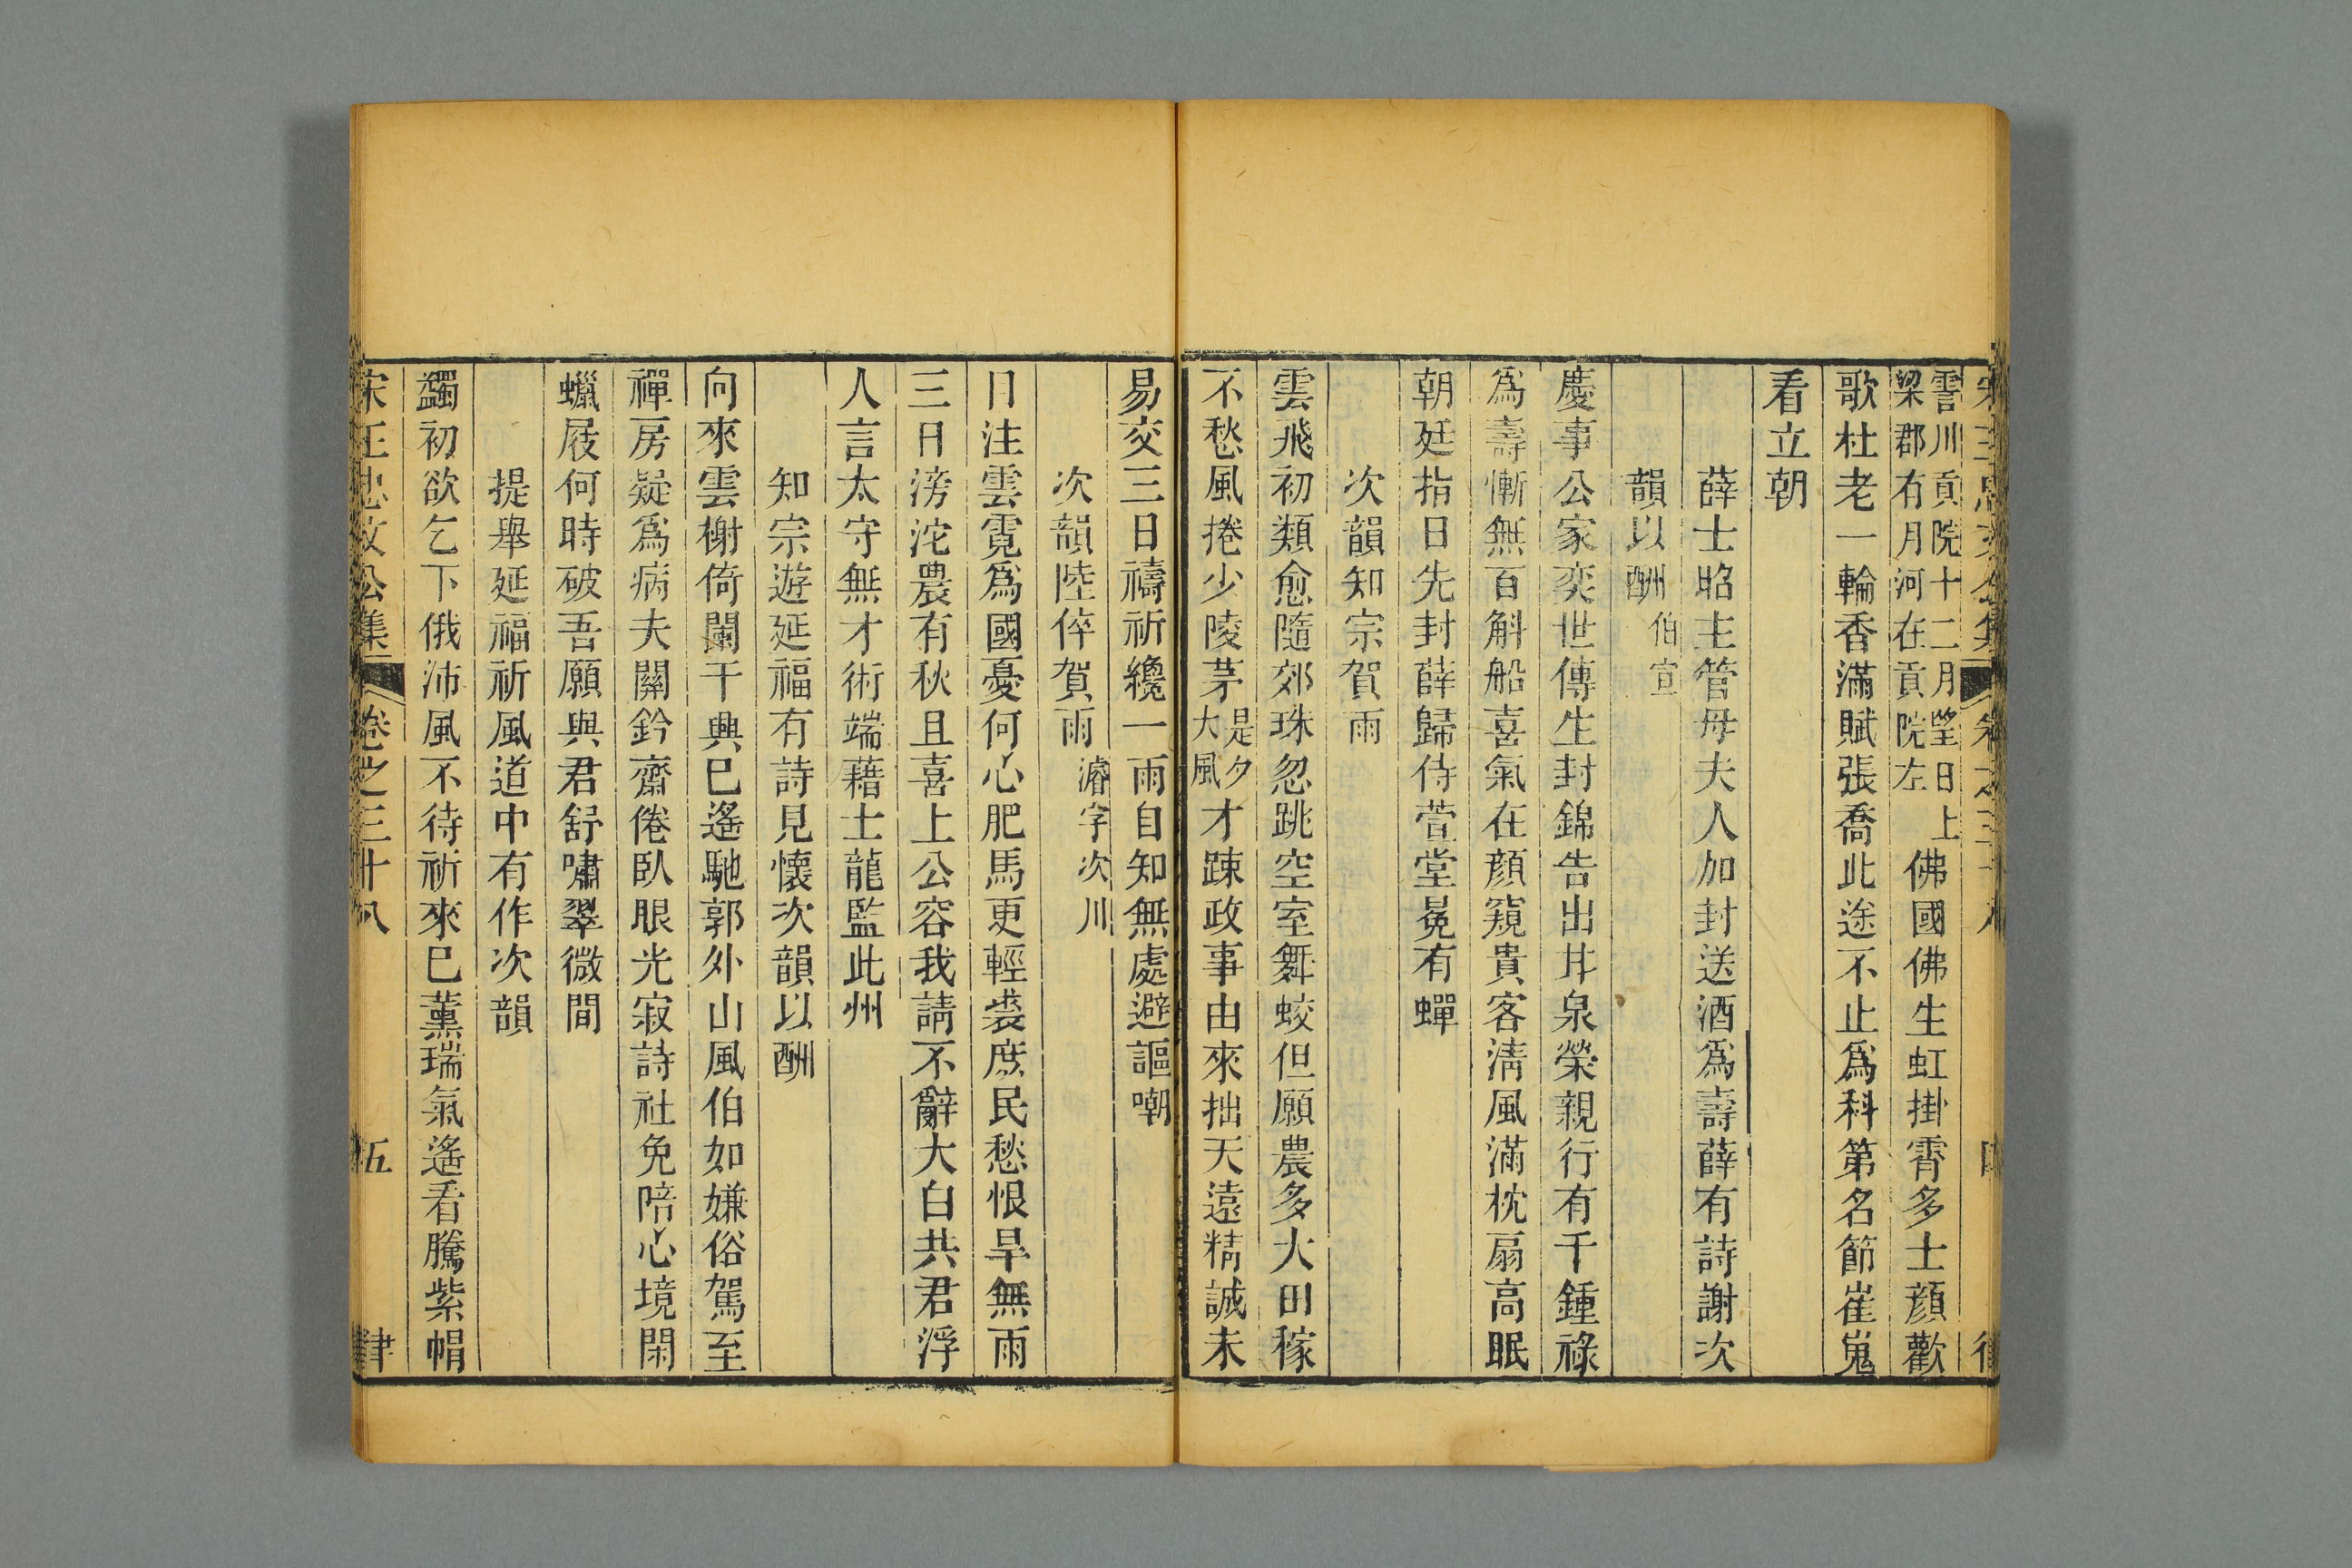 宋王忠文公集 卷之三十八 四 律
霅川貢院十二月望日上梁郡有月河在貢院左佛國佛生虹掛霄多士顔歡
歌杜老一輪香滿賦張喬此途不止爲科第名節崔嵬
看立朝
薛士昭主管母夫人加封送酒爲壽薛有詩謝次
韻以酬伯宣
慶事公家奕世傳生封錦告出井泉榮親行有千鍾祿
爲壽慚無百斛船喜氣在顔窺貴客淸風滿枕扇高眠
朝廷指日先封薛歸侍萱堂冕有蟬
次韻知宗賀雨
雲飛初類愈隨郊珠忽跳空室舞蛟但願農多大田稼
不愁風捲少陵茅是夕大風才踈政事由來拙天遠精誠未
易交三日禱祈纔一雨自知無處避謳嘲
次韻陸倅賀雨濬字次川
日注雲霓爲國憂何心肥馬更輕裘庶民愁恨旱無雨
三日滂沱農有秋且喜上公容我請不辭大白共君浮
人言太守無才術端藉土龍監此州
知宗遊延福有詩見懷次韻以酬
向來雲榭倚闌干興巳遙馳郭外山風伯如嫌俗駕至
禪房疑爲病夫關鈐齋倦臥眼光寂詩社免陪心境閑
蠟屐何時破吾願與君舒嘯翠微間
提舉延福祈風道中有作次韻
蠲初欲乞下俄沛風不待祈來巳薰瑞氣遙看騰紫帽
宋王忠文公集 卷之三十八 五 律